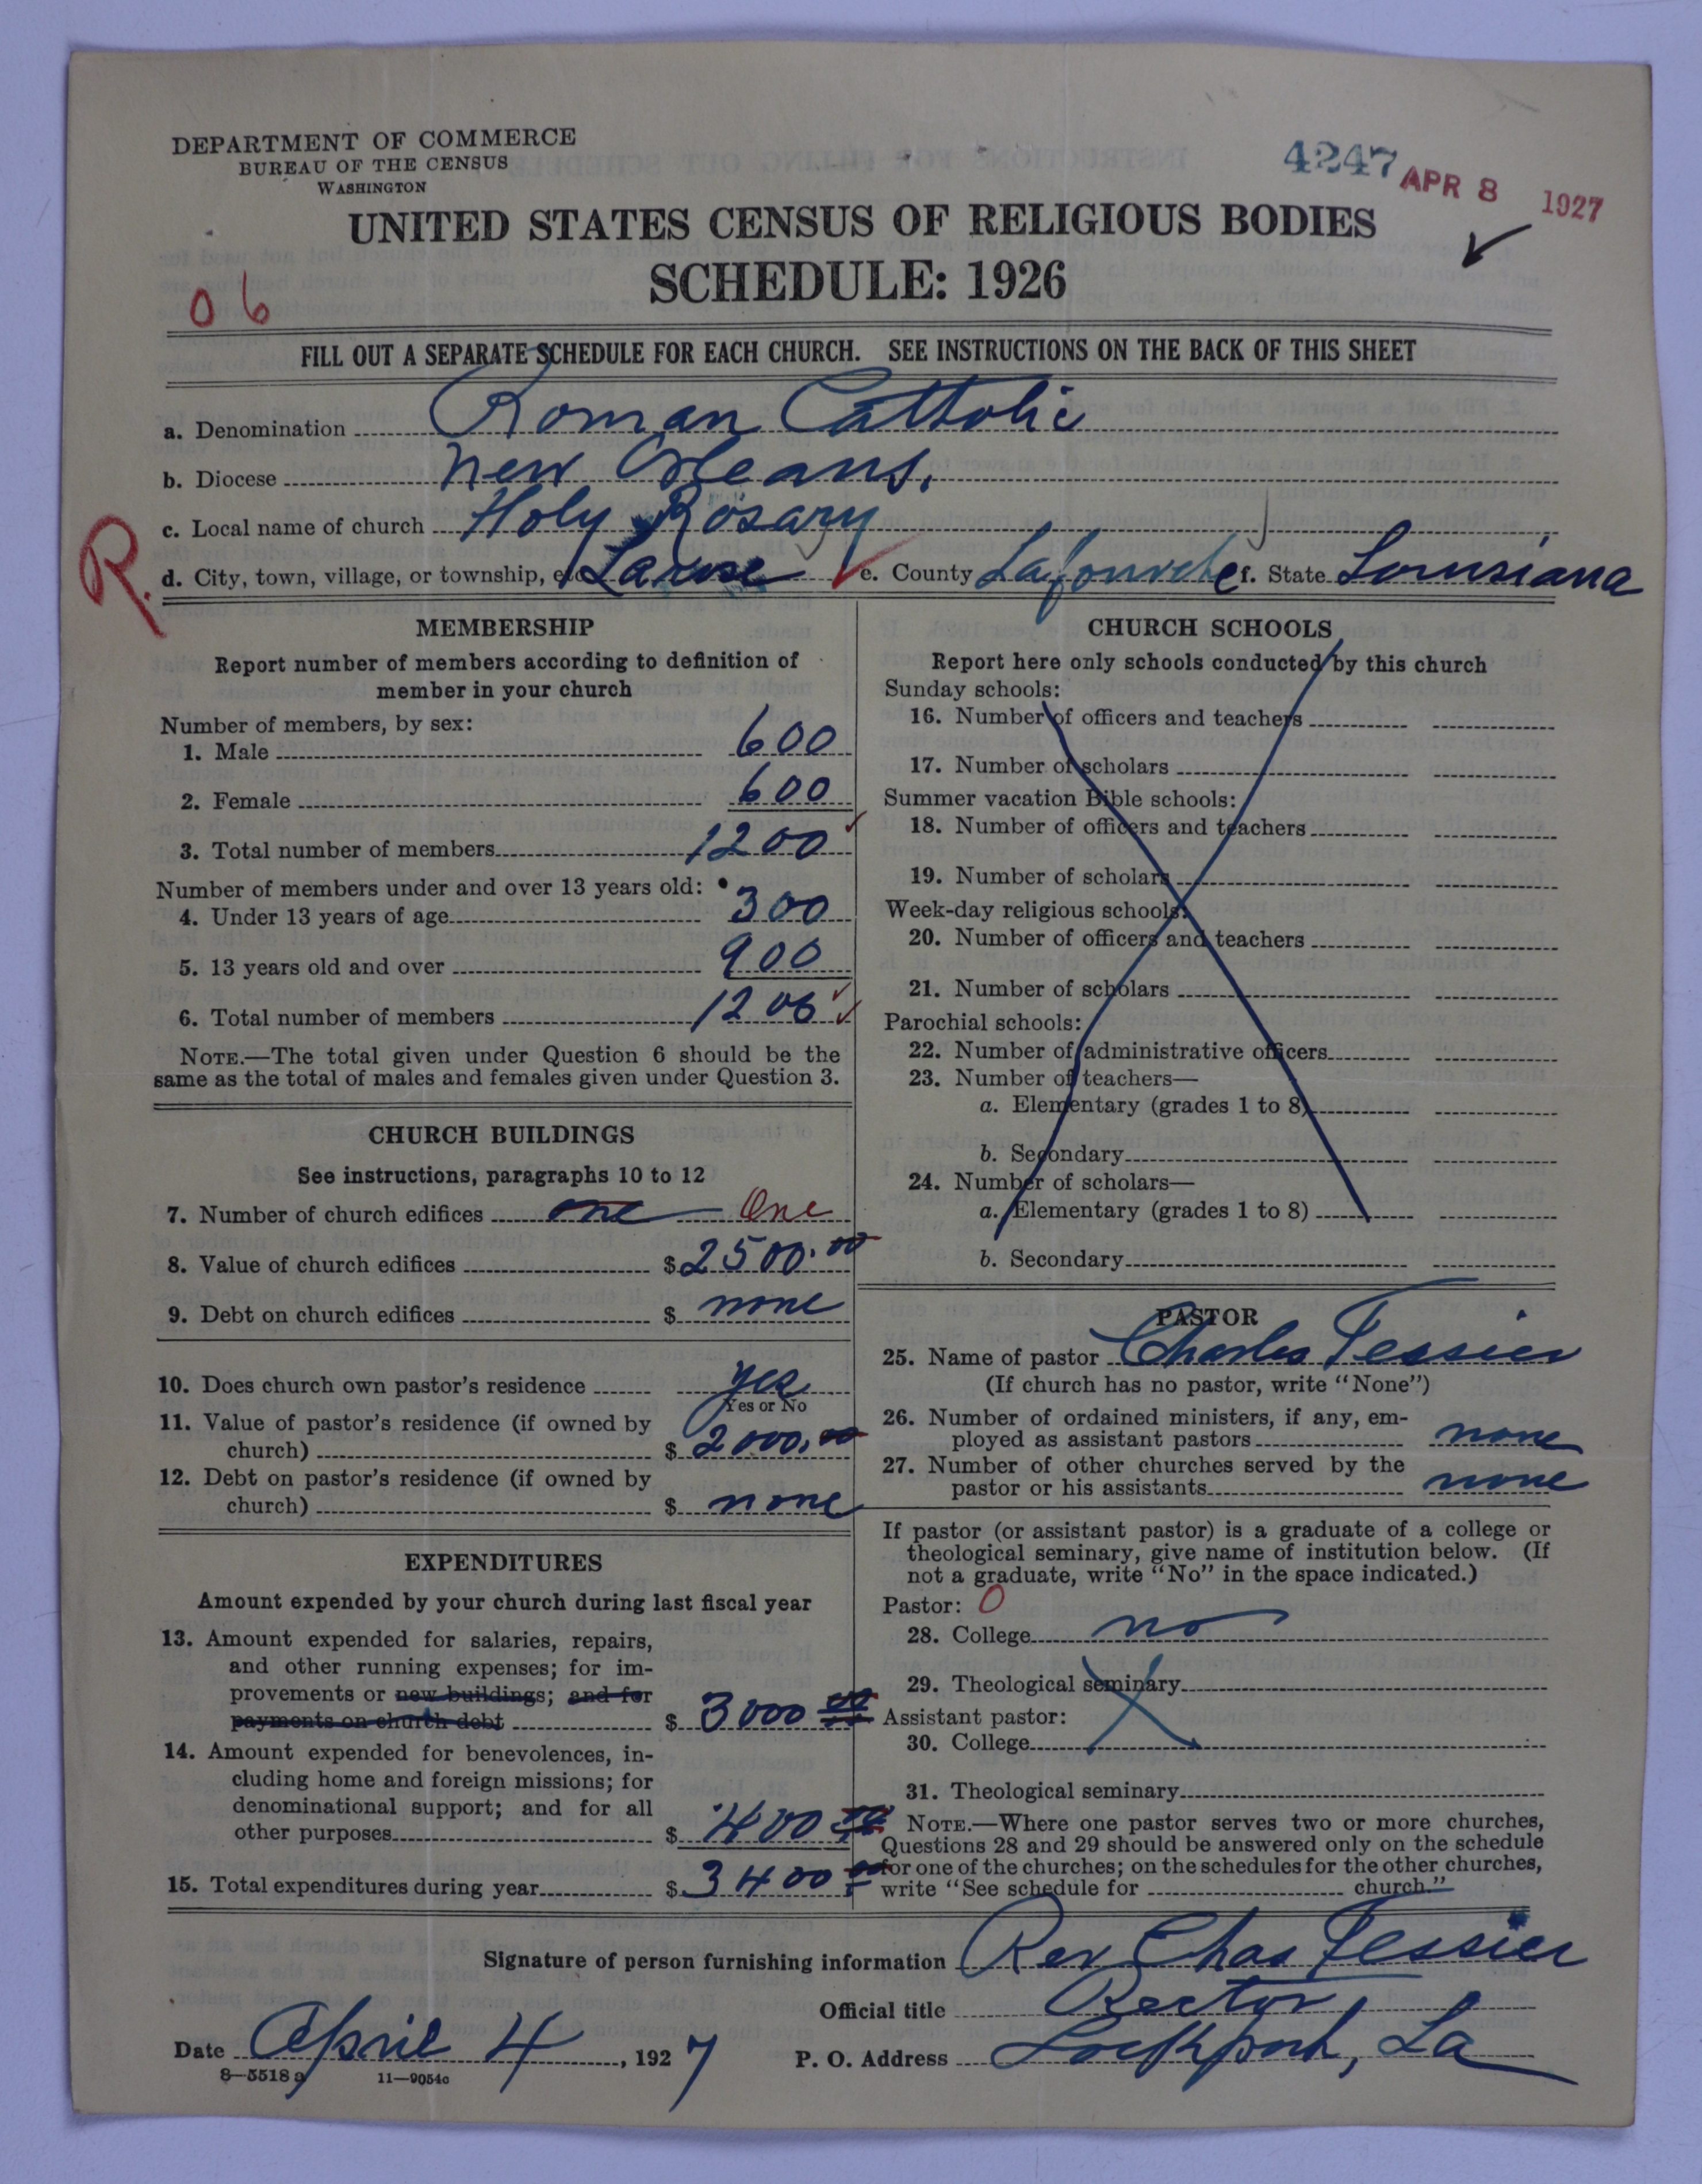 DEPARTMENT OF COMMERCE
BUREAU OF THE CENSUS
WASHINGTON
4247 APR 8 1927
UNITED STATES CENSUS OF RELIGIOUS BODIES
SCHEDULE: 1926
06
FILL OUT A SEPARATE SCHEDULE FOR EACH CHURCH. SEE INSTRUCTIONS ON THE BACK OF THIS SHEET
a. Denomination Roman Catholic
b. Diocese New Orleans.
c. Local name of church Holy Rosary
R.
d. City, town, village, or township, etc. Larose e. County Lafourche f. State Louisiana
MEMBERSHIP
Report number of members according to definition of
member in your church
Number of members, by sex:
1. Male 600
2. Female 600
3. Total number of members 1200
Number of members under and over 13 years old:
4. Under 13 years of age 300
5. 13 years old and over 900
6. Total number of members 1200
NOTE.—The total given under Question 6 should be the
same as the total of males and females given under Question 3.
CHURCH BUILDINGS
See instructions, paragraphs 10 to 12
7. Number of church edifices one One
8. Value of church edifices $ 2500.00
9. Debt on church edifices $ none
10. Does church own pastor's residence yes
Yes or No
11. Value of pastor's residence (if owned by
church) $ 2000.00
12. Debt on pastor's residence (if owned by
church) $ none
EXPENDITURES
Amount expended by your church during last fiscal year
13. Amount expended for salaries, repairs,
and other running expenses; for im-
provements or new buildings; and for
payments on church debt $ 3000 00
14. Amount expended for benevolences, in-
cluding home and foreign missions; for
denominational support; and for all
other purposes $ 400 00
15. Total expenditures during year $ 3400 00
CHURCH SCHOOLS
Report here only schools conducted by this church
Sunday schools:
16. Number of officers and teachers
17. Number of scholars
Summer vacation Bible schools:
18. Number of officers and teachers
19. Number of scholars
Week-day religious schools:
20. Number of officers and teachers
21. Number of scholars
Parochial schools:
22. Number of administrative officers
23. Number of teachers—
a. Elementary (grades 1 to 8)
b. Secondary
24. Number of scholars—
a. Elementary (grades 1 to 8)
b. Secondary
PASTOR
25. Name of pastor Charles Tessier
(If church has no pastor, write "None")
26. Number of ordained ministers, if any, em-
ployed as assistant pastors none
27. Number of other churches served by the
pastor or his assistants none
If pastor (or assistant pastor) is a graduate of a college or
theological seminary, give name of institution below. (If
not a graduate, write "No" in the space indicated.)
Pastor: 0
28. College no
29. Theological seminary
Assistant pastor:
30. College
31. Theological seminary
NOTE.—Where one pastor serves two or more churches,
Questions 28 and 29 should be answered only on the schedule
for one of the churches; on the schedules for the other churches,
write "See schedule for church."
Signature of person furnishing information Rev Chas Tessier
Official title Rector
Date April 4, 1927 P. O. Address Lockport, La
8—5518 a 11—9054c